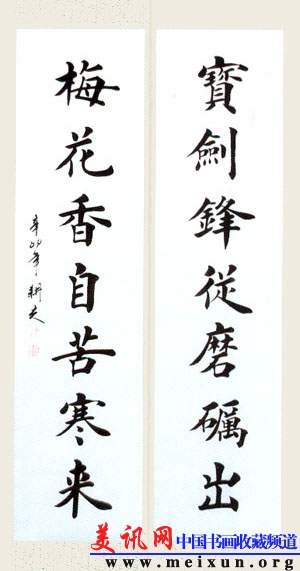 寶劍鋒從磨礪出
梅花香自苦寒来
辛巳年 耕夫
美讯网 中国书画收藏频道
www.meixun.org